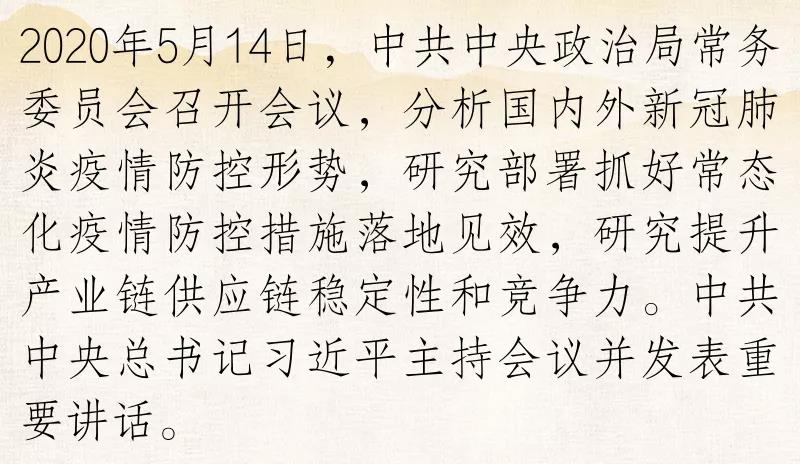 2020年5月14日，中共中央政治局常务
委员会召开会议，分析国内外新冠肺
炎疫情防控形势，研究部署抓好常态
化疫情防控措施落地见效，研究提升
产业链供应链稳定性和竞争力。中共
中央总书记习近平主持会议并发表重
要讲话。